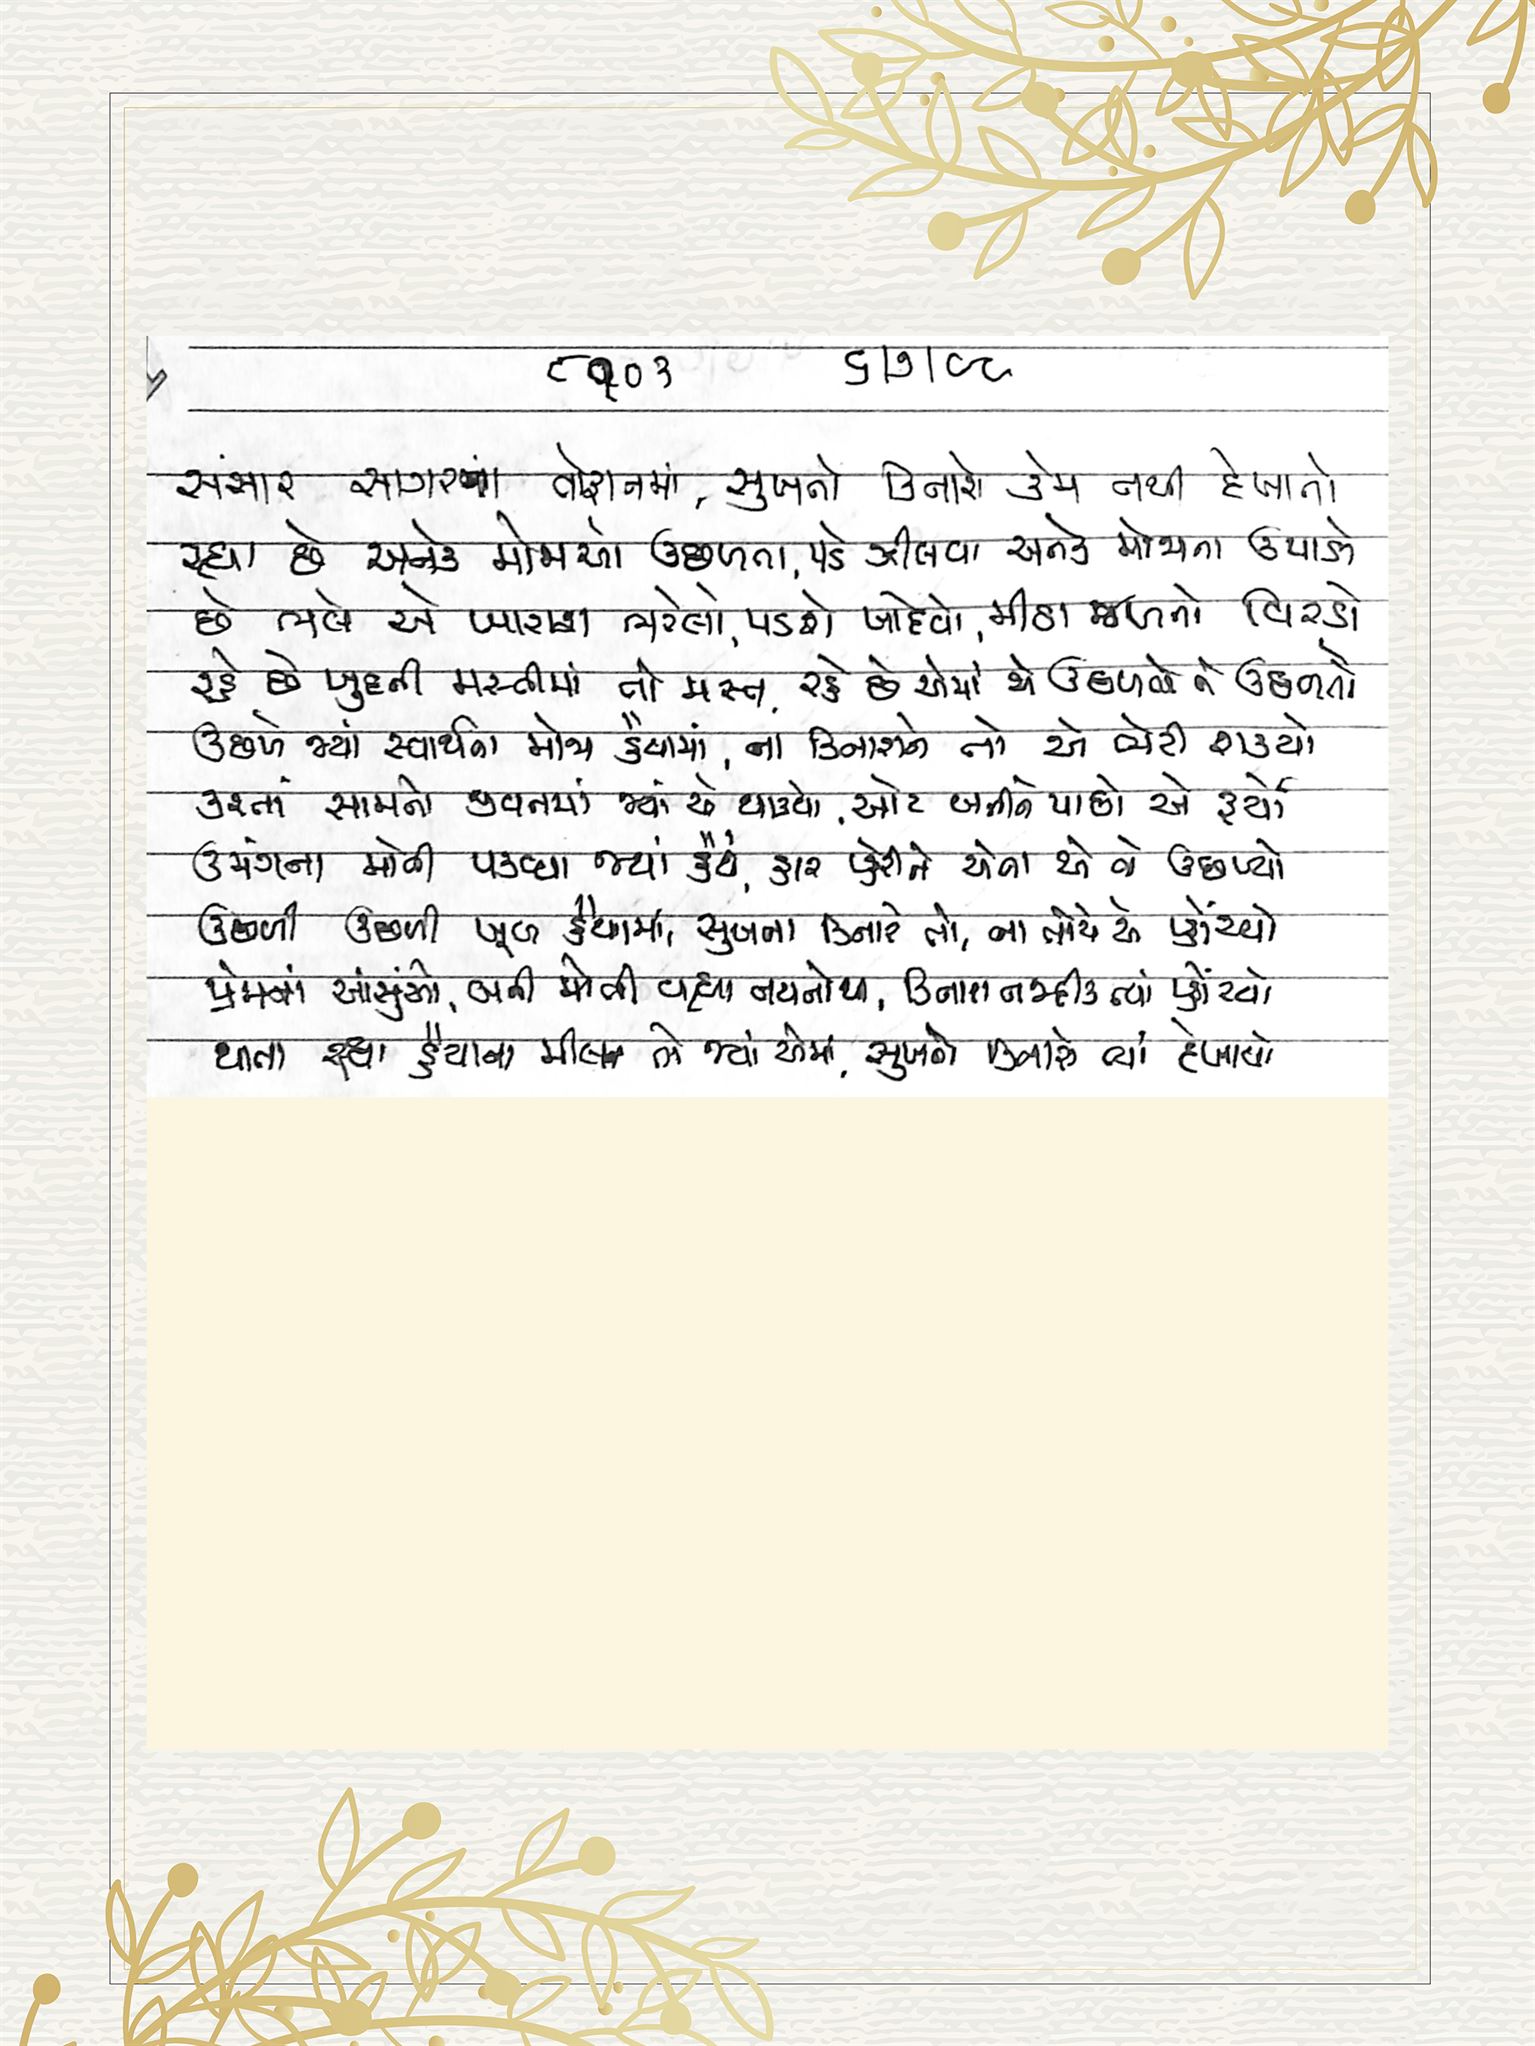 ૮૧૦૩ ૬|૭|૯૯
સંસાર સાગરના તોફાનમાં, સુખનો કિનારો કેમ નથી દેખાતો
રહ્યા છે અનેક મોજાઓ ઉછળતા, પડે ઝીલવા અનેક મોજાના ઉપાડો
છે ભલે એ ખારાશ ભરેલો, પડશે ખોદવો, મીઠા જળનો વિરડો
રહે છે ખુદની મસ્તીમાં તો મસ્ત, રહે છે એમાં એ ઉછળતો ને ઉછળતો
ઉછળે જ્યાં સ્વાર્થના મોજા હૈયામાં, ના કિનારાને તો એ ભેટી શક્યો
કરતાં સામનો જીવનમાં જ્યાં એ થાક્યો, ઓટ બનીને પાછો એ ફર્યો
ઉમંગના મોતી પકવ્યા જ્યાં હૈયે, હાર પહેરીને એના એ તો ઉછળ્યો
ઉછળી ઉછળી ખૂબ હૈયામાં, સુખના કિનારે તો, ના તોયે એ પહોંચ્યો
પ્રેમનાં આંસુઓ, બની મોતી વહ્યા નયનોથી, કિનારા નજદીક ત્યાં પહોંચ્યો
થાતા રહ્યા હૈયાના મીલન તો જ્યાં એમાં, સુખનો કિનારો ત્યાં દેખાયો